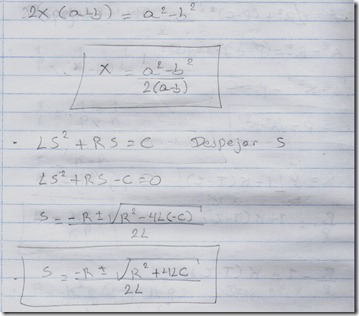 2x (a-b) = a² - b²
x = a² - b² / 2(a-b)
· LS² + RS = C Despejar S
LS² + RS - C = 0
S = -R ± √R² - 4L(-C) / 2L
S = -R ± √R² + 4LC / 2L